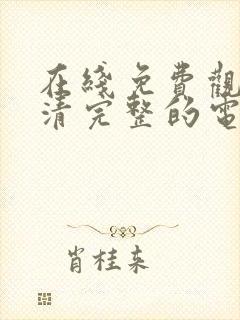 在綫免費觀
清完整的電
肖桂来